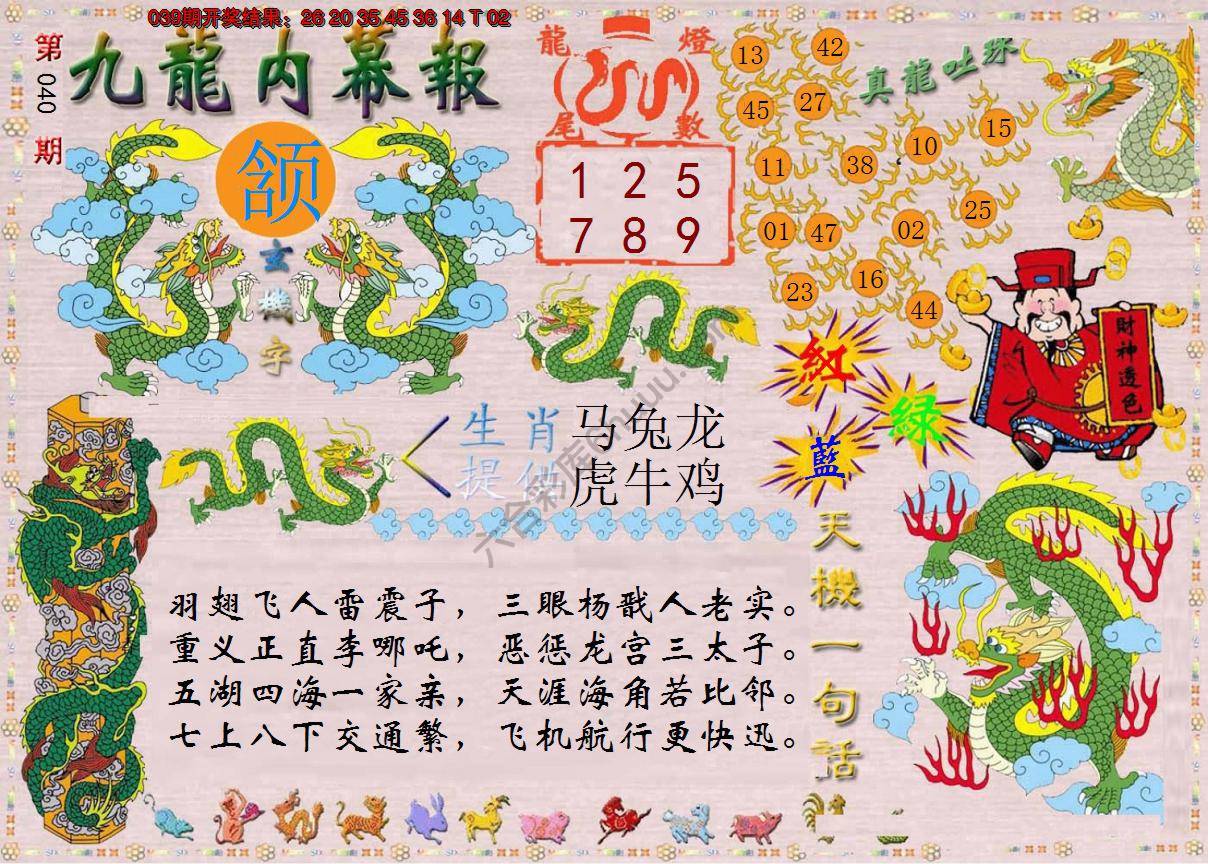 039期开奖结果：26 20 35 45 36 14 T 02
第040期
九龍内幕報
颔
玄機字
龍燈
尾數
1 2 5
7 8 9
真龍吐珠
13 42
45 27
10 15
11 38
01 47 02 25
23 16 44
財神透色
紅
綠
藍
生肖 马兔龙
提供 虎牛鸡
天機一句話
羽翅飞人雷震子，三眼杨戬人老实。
重义正直李哪吒，恶惩龙宫三太子。
五湖四海一家亲，天涯海角若比邻。
七上八下交通繁，飞机航行更快迅。